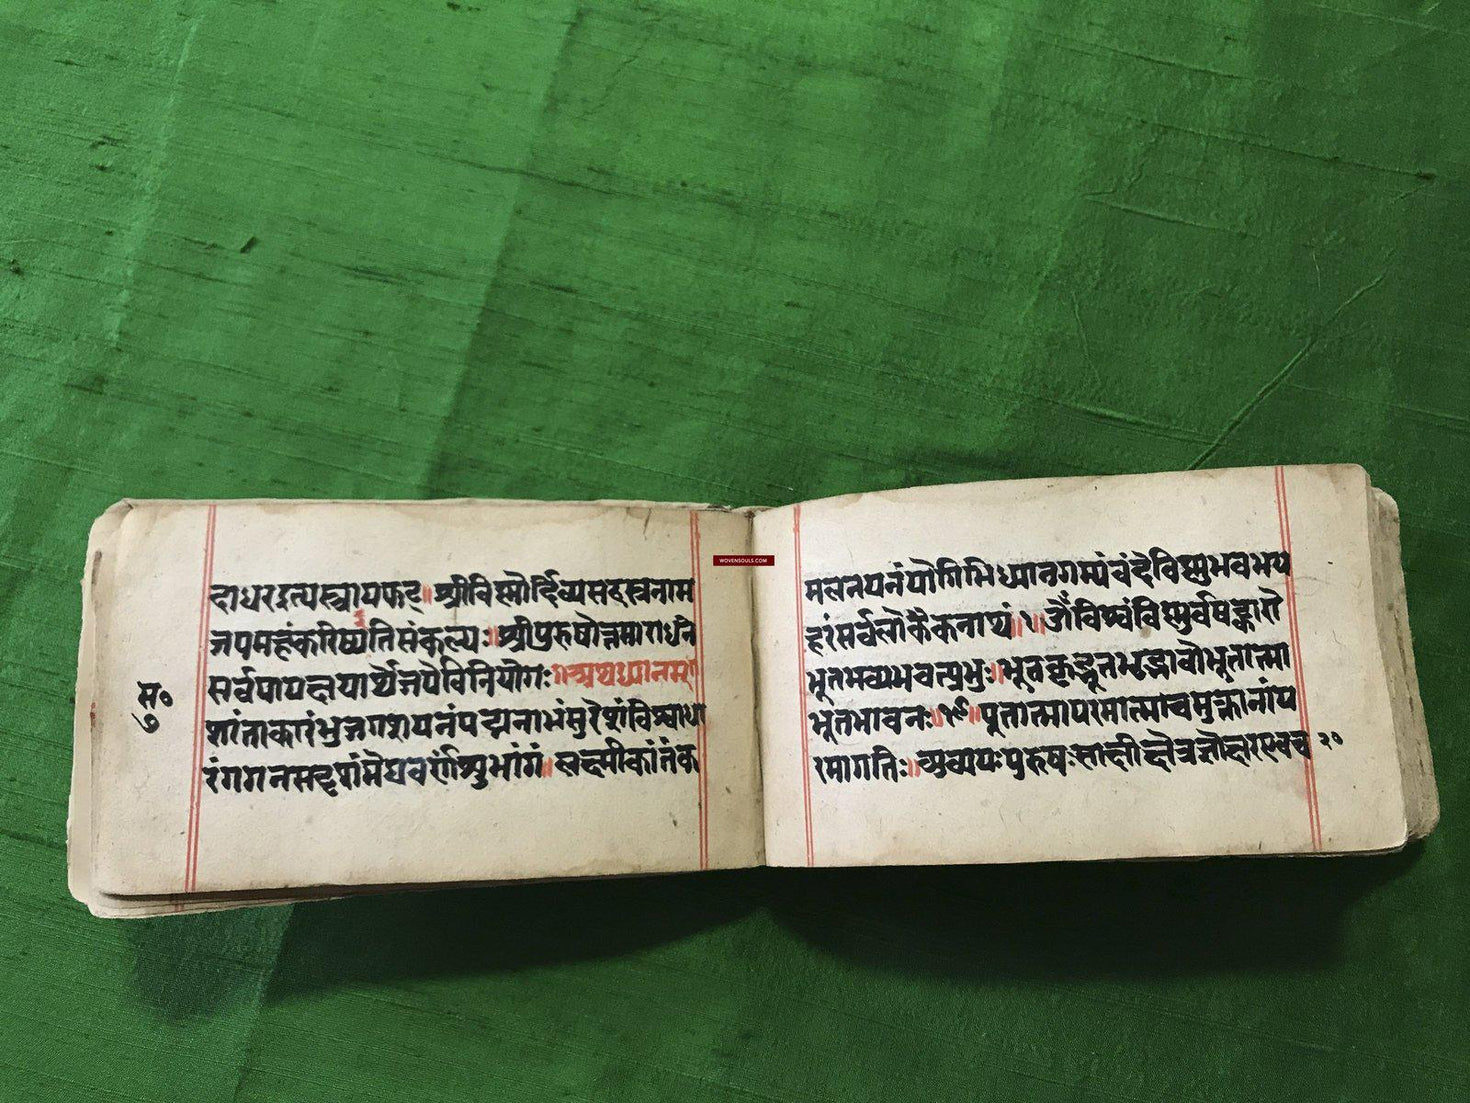 दाधरइत्यस्त्रायफट्॥श्रीविष्णोर्दिव्यसहस्त्रनाम
जपमहंकरिष्यतिसंकल्पः॥श्रीपुरुषोत्तमाराधने
सर्वपापक्षयार्थेजपेविनियोगः॥अथध्यानम्॥
शांताकारंभुजगशयनंपद्मनाभंसुरेशंविश्वाधा
रंगगनसदृशंमेघवर्णंशुभांगं॥लक्ष्मीकांतंक
स॰
७
WOVENSOULS.COM
मलनयनंयोगिभिर्ध्यानगम्यंवंदेविष्णुंभवभय
हरंसर्वलोकैकनाथं॥१॥ॐविश्वंविष्णुर्वषट्कारो
भूतभव्यभवत्प्रभुः॥भूतकृद्भूतभृद्भावोभूतात्मा
भूतभावनः॥१९॥पूतात्मापरमात्माचमुक्तानांप
रमागतिः॥अव्ययःपुरुषःसाक्षीक्षेत्रज्ञोक्षरएवच
२०